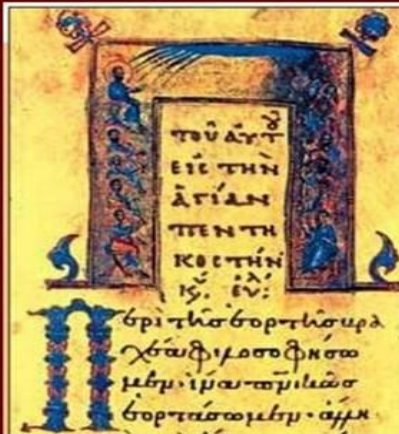 ΤΟΥ ΑΥΤΟΥ
ΕΙΣ ΤΗΝ
ἉΓΙΑΝ
ΠΕΝΤΗ
ΚΟΣΤΗΝ
Περὶ τῆς ἑορτῆς βρα
χέα φιλοσοφήσω
μεν· ἵνα πνικῶς
ἑορτάσωμεν· ἄλλη